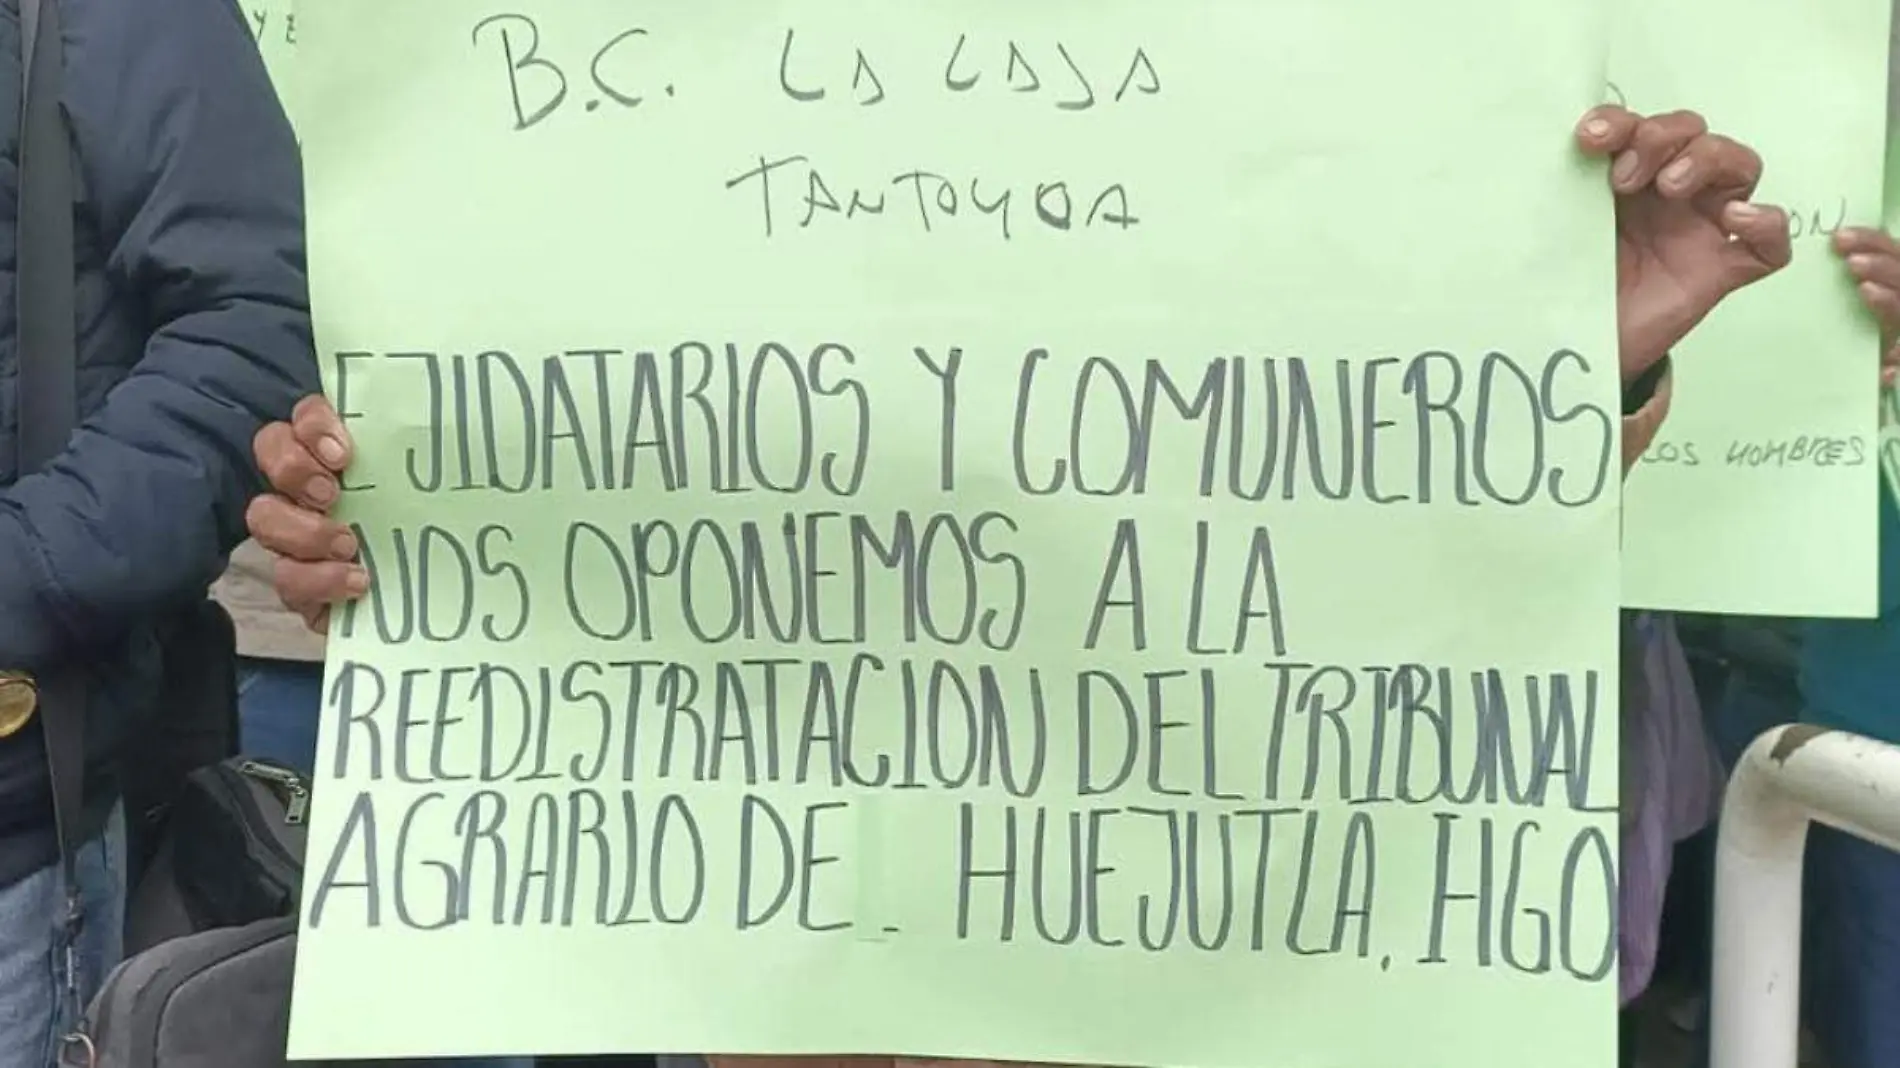 B.C. LA LAJA
TANTOYOA
EJIDATARIOS Y COMUNEROS
NOS OPONEMOS A LA
REEDISTRATACION DEL TRIBUNAL
AGRARIO DE. HUEJUTLA. HGO
LOS HOMBRES